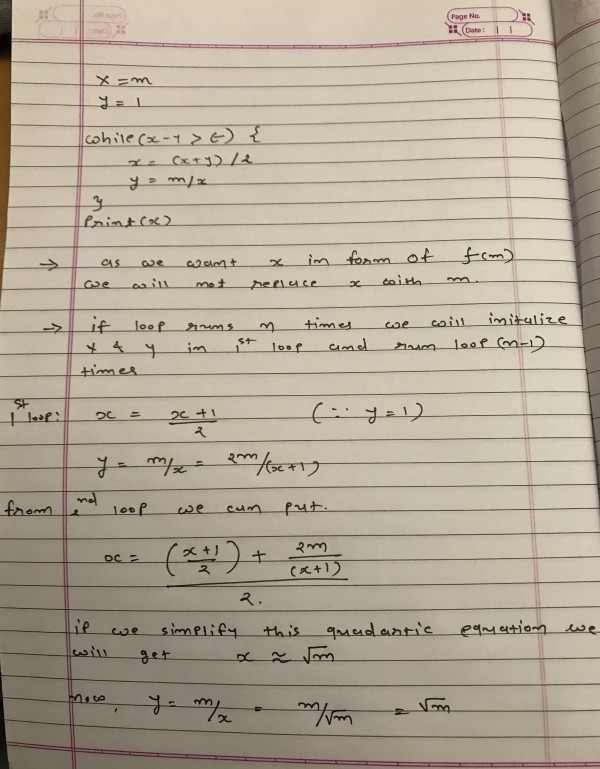 Page No.
Date:
x = m
y = 1
while (x-y > ϵ) {
x = (x+y)/2
y = m/x
}
Print(x)
→ as we want x in form of f(m)
we will not repluce x with m.
→ if loop runs n times we will initalize
x & y in 1st loop and run loop (n-1)
times
1st loop: x = (x+1)/2 (∵ y=1)
y = m/x = 2m/(x+1)
from 2nd loop we can put.
x = ((x+1)/2 + 2m/(x+1))/2.
if we simplify this quadantic equation we
will get x ≈ √m
now, y = m/x = m/√m = √m